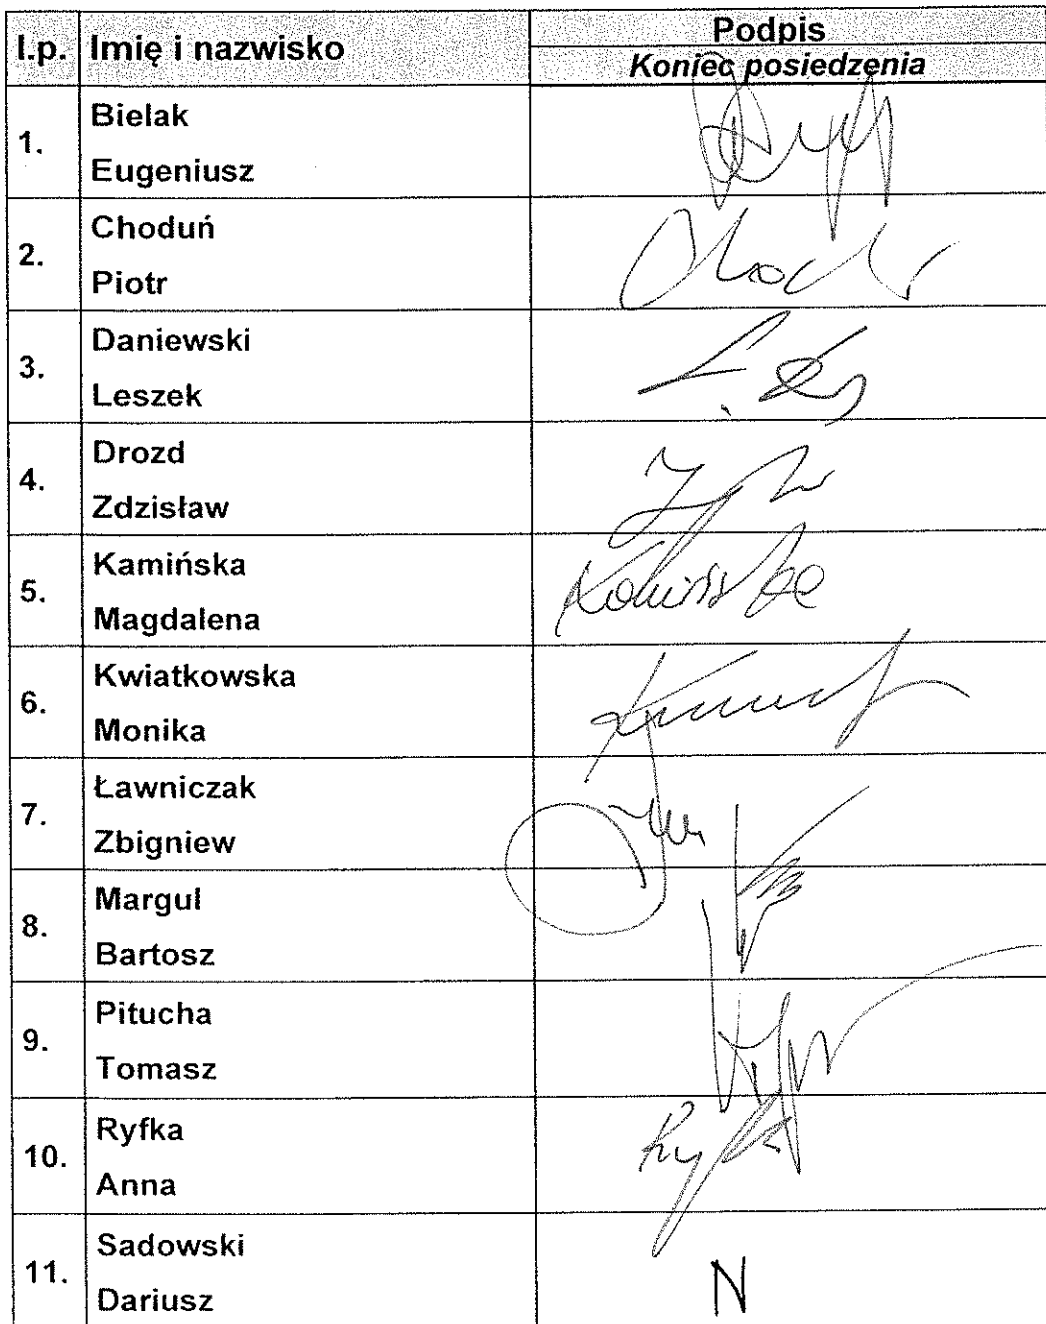 l.p. Imię i nazwisko Podpis
Koniec posiedzenia
1. Bielak
Eugeniusz
2. Choduń
Piotr
3. Daniewski
Leszek
4. Drozd
Zdzisław
5. Kamińska
Magdalena
Kamińska
6. Kwiatkowska
Monika
7. Ławniczak
Zbigniew
8. Margul
Bartosz
9. Pitucha
Tomasz
10. Ryfka
Anna
11. Sadowski
Dariusz
N